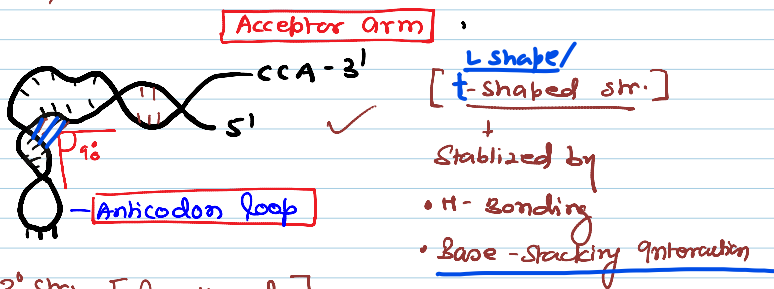 Acceptor arm
CCA-3'
5'
90°
Anticodon loop
L shape/
[t-shaped str.]
Stablized by
• H- Bonding
• Base-stacking Interaction